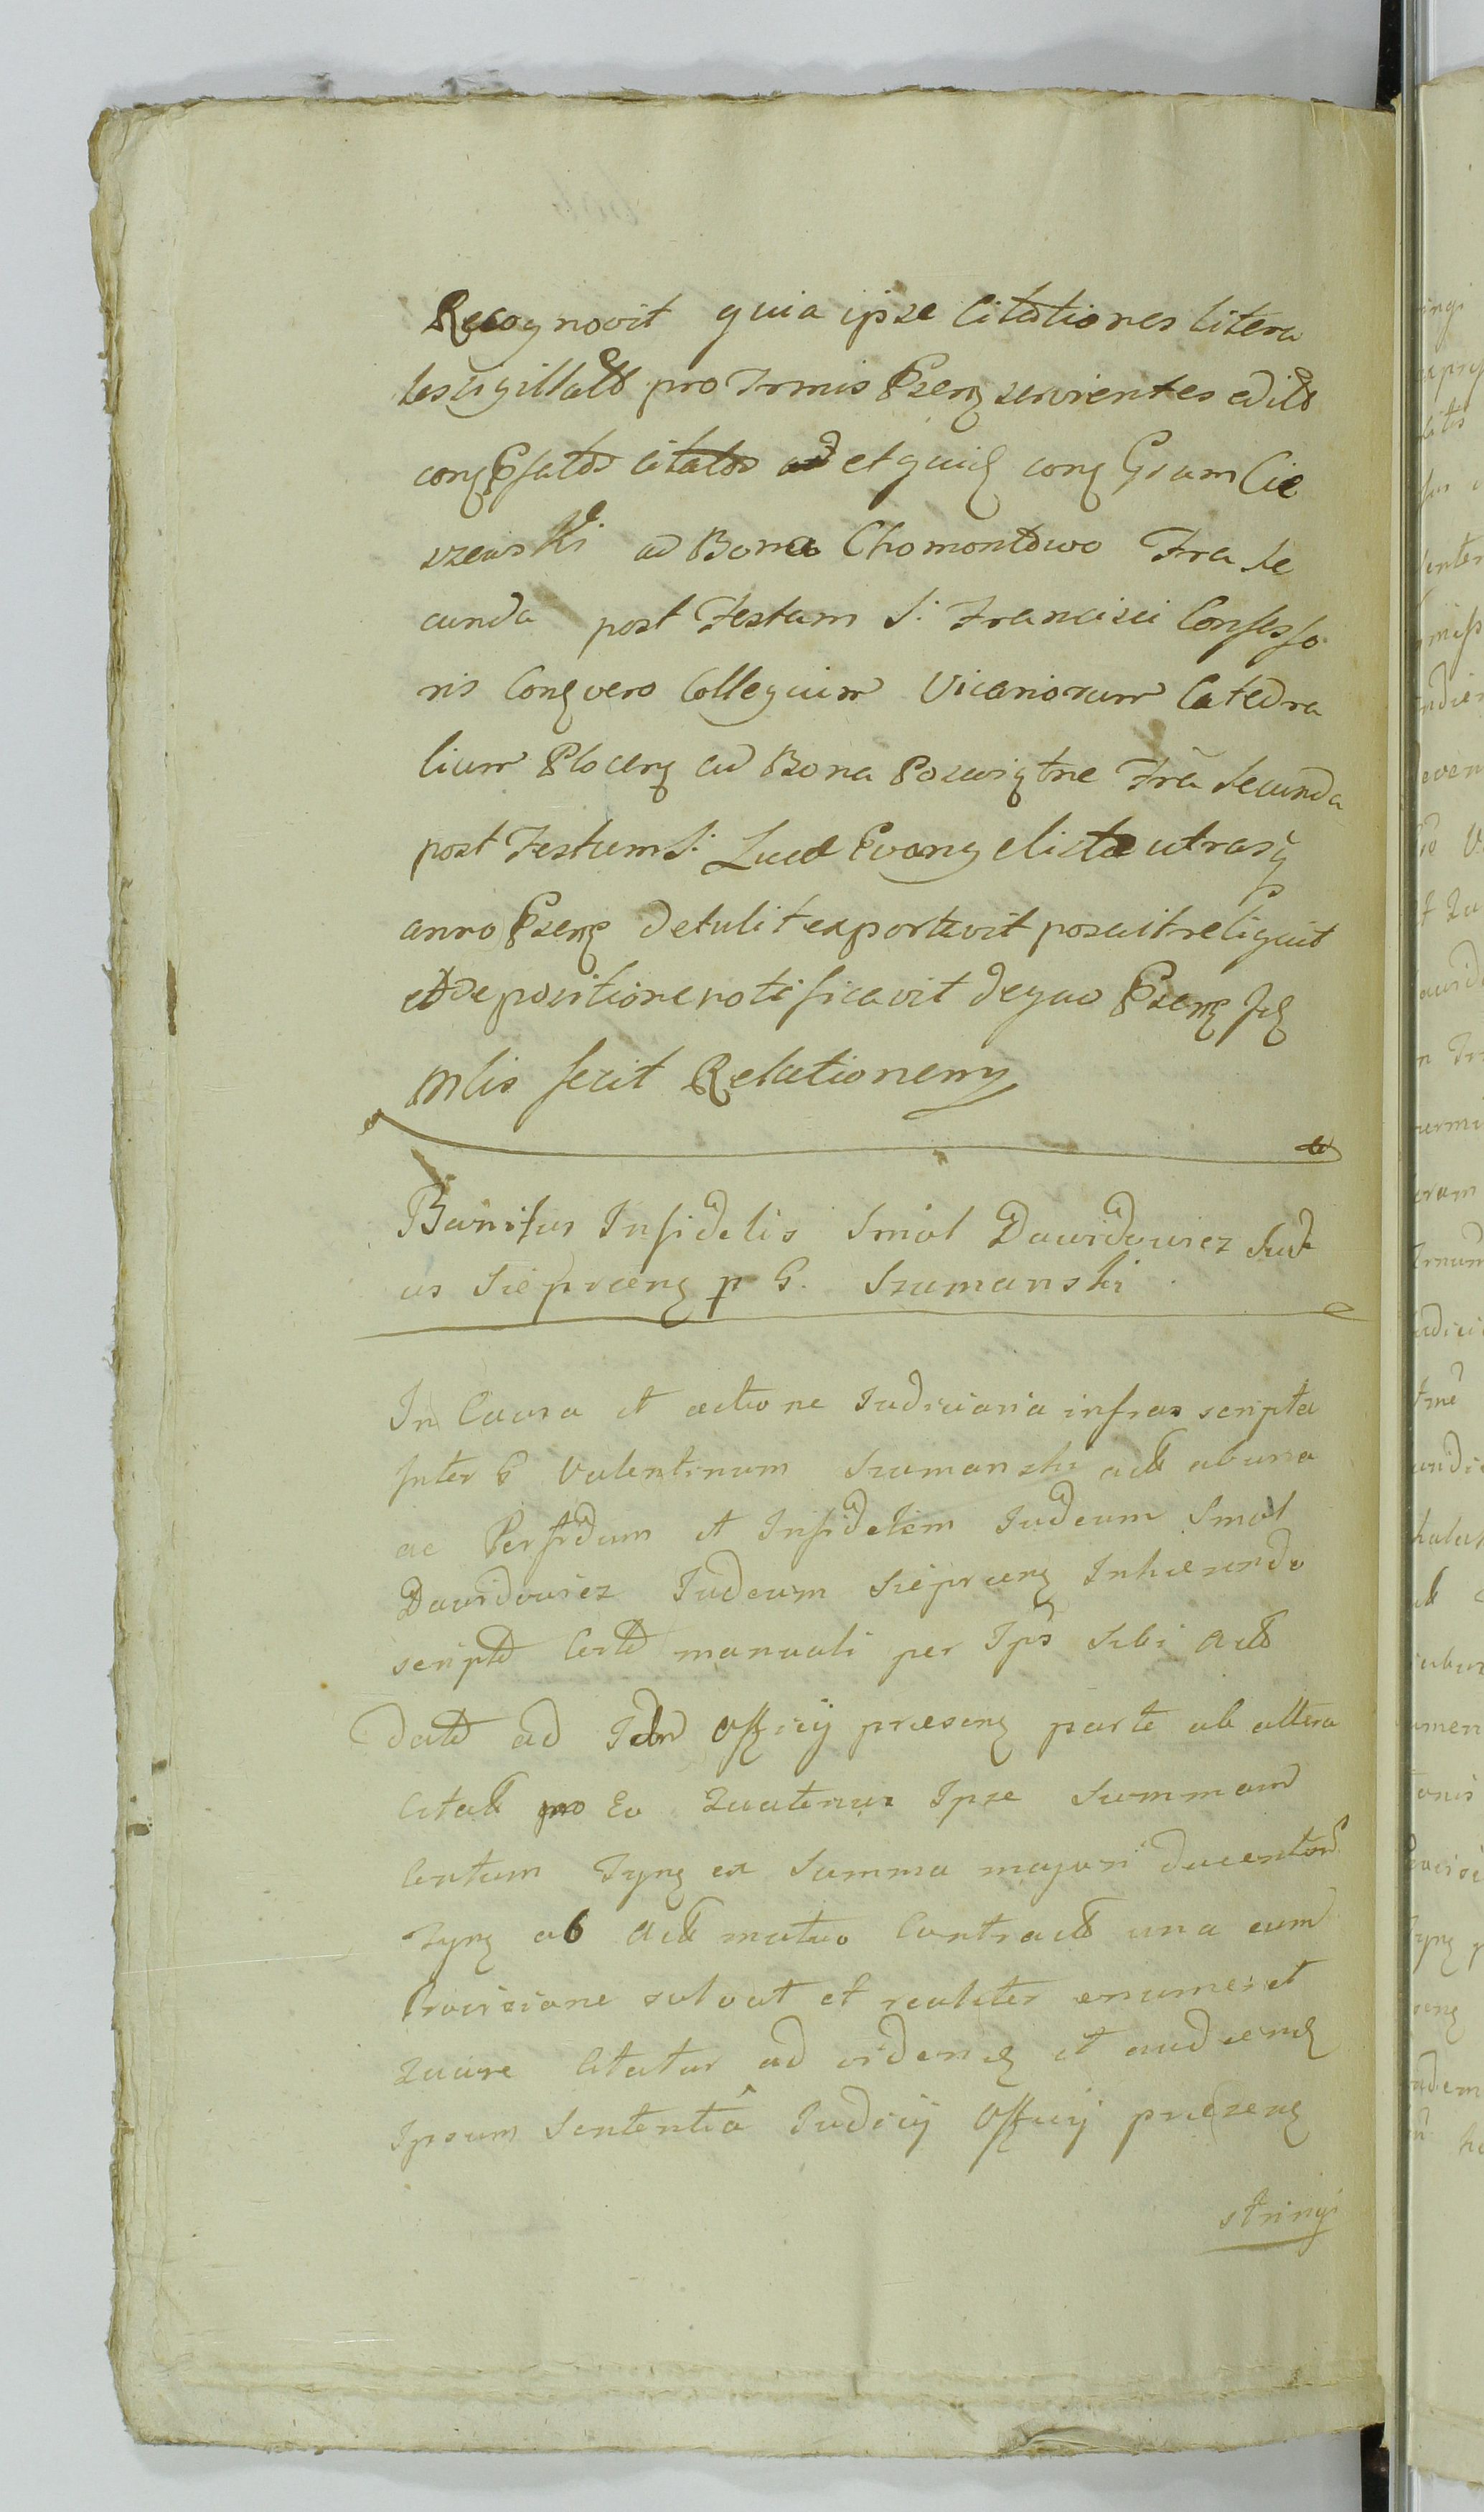 Recognovit quia ipse Citationes litera
les sigillatas pro Trmis Psenz servientes edit
conz Psatos citatos ad et quid conz Gsum Cie
szewski ad Bona Chomontowo Fra Se
cunda post Festum S. Francisci Confesso
ris Conz vero Collegium Vicariorum Catedra
lium Plocenz ad Bona Poswiętne Fra Secunda
post Festum S. Lucæ Evangelistæ utrasq
anno Psenz detulit exportavit posuit reliquit
et de positione notificavit de quo Psenz
mlis fecit Relationem
Banitus Infidelis Smol Dawidowicz Jud
us Sieprcenz p G. Szumanski
In Causa et actione Judiciaria infras scripta
Inter G Valentinum Szumanski act ab una
ac Perfidum et Infidelem Judeum Smol
Dawidowicz Judeum Sieprcenz Inhærendo
script Cert manuali per Ips Sibi Act
dat ad Officij præsenz parte ab altera
Citat pro Eo Quatenus Ipse Summam
Centum Tynz ex Summa majori ducentor
Tynz ab Act mutuo Contract una cum
Provisione solvat et realiter enumeret
Quare Citatur ad videnz et audienz
Ipsum Sententiâ Judicij Officij præsenz
stringi